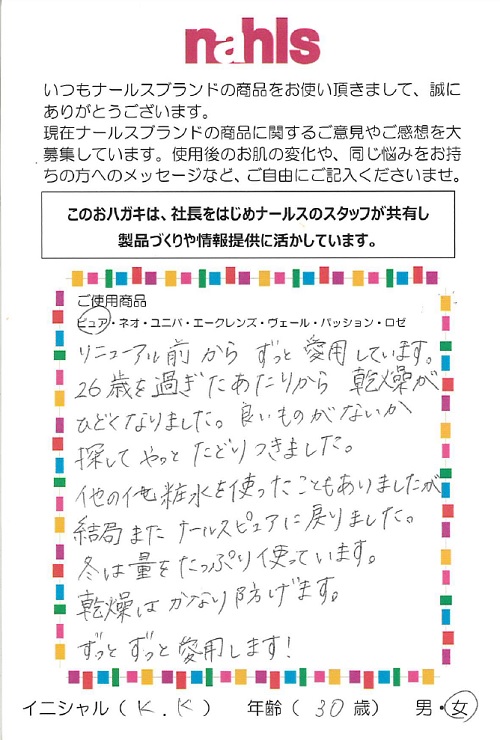 nahls
いつもナールスブランドの商品をお使い頂きまして、誠に
ありがとうございます。
現在ナールスブランドの商品に関するご意見やご感想を大
募集しています。使用後のお肌の変化や、同じ悩みをお持
ちの方へのメッセージなど、ご自由にご記入くださいませ。
このおハガキは、社長をはじめナールスのスタッフが共有し
製品づくりや情報提供に活かしています。
ご使用商品
ピュア・ネオ・ユニバ・エークレンズ・ヴェール・パッション・ロゼ
リニューアル前から ずっと愛用しています。
26歳を過ぎたあたりから 乾燥が
ひどくなりました。良いものがないか
探して やっと たどりつきました。
他の化粧水を使ったこともありましたが
結局また ナールスピュアに戻りました。
冬は量をたっぷり使っています。
乾燥は かなり防げます。
ずっと ずっと 愛用します!
イニシャル ( K.K ) 年齢 ( 30 歳) 男・女